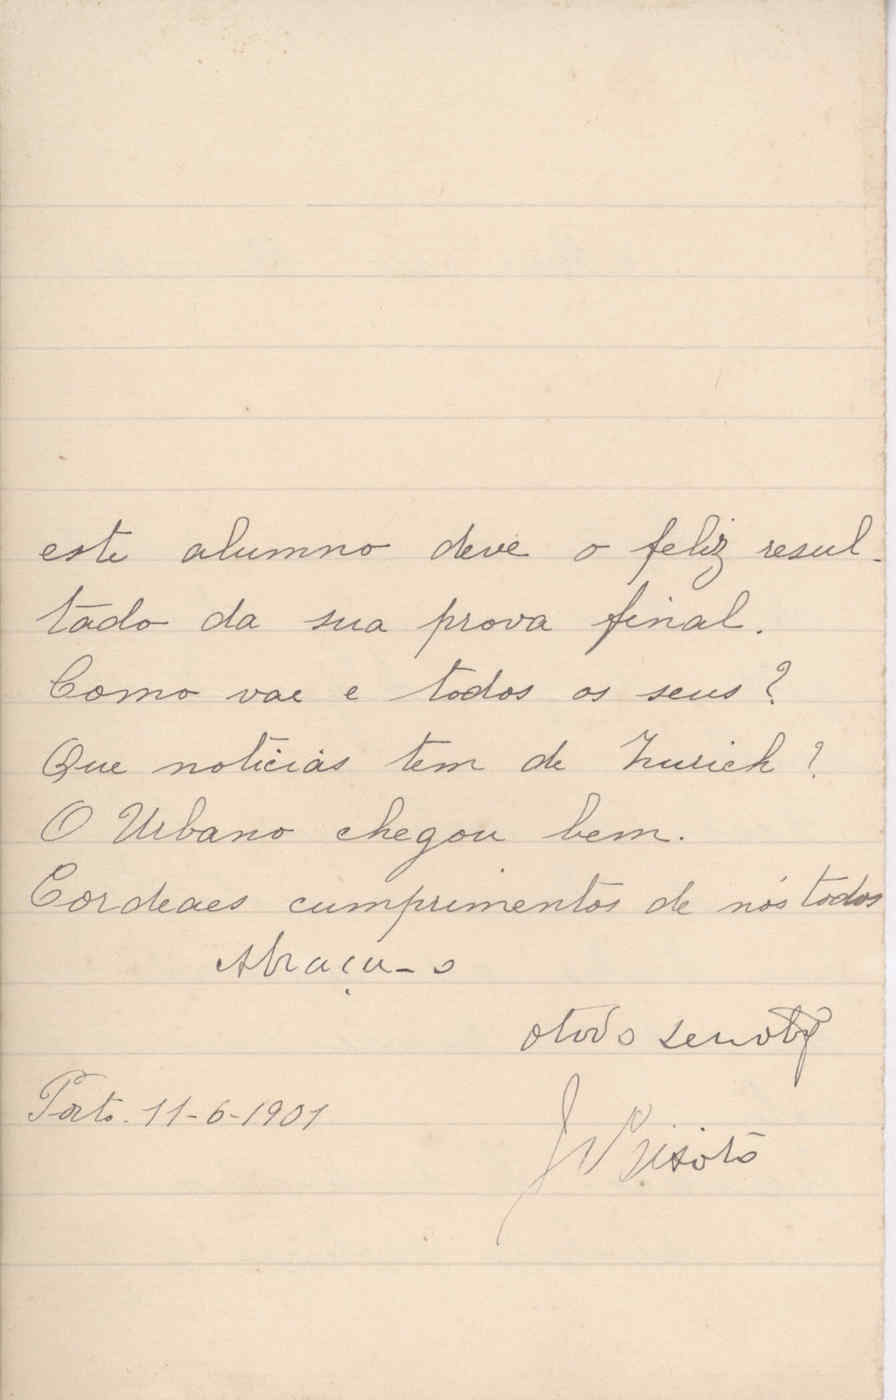 este alumno deve o feliz resul-
tado da sua prova final.
Como vae e todos os seus?
Que noticias tem de Zurich?
O Urbano chegou bem.
Cordeaes cumprimentos de nós todos
Abraça-o
o todo
Porto. 11-6-1901